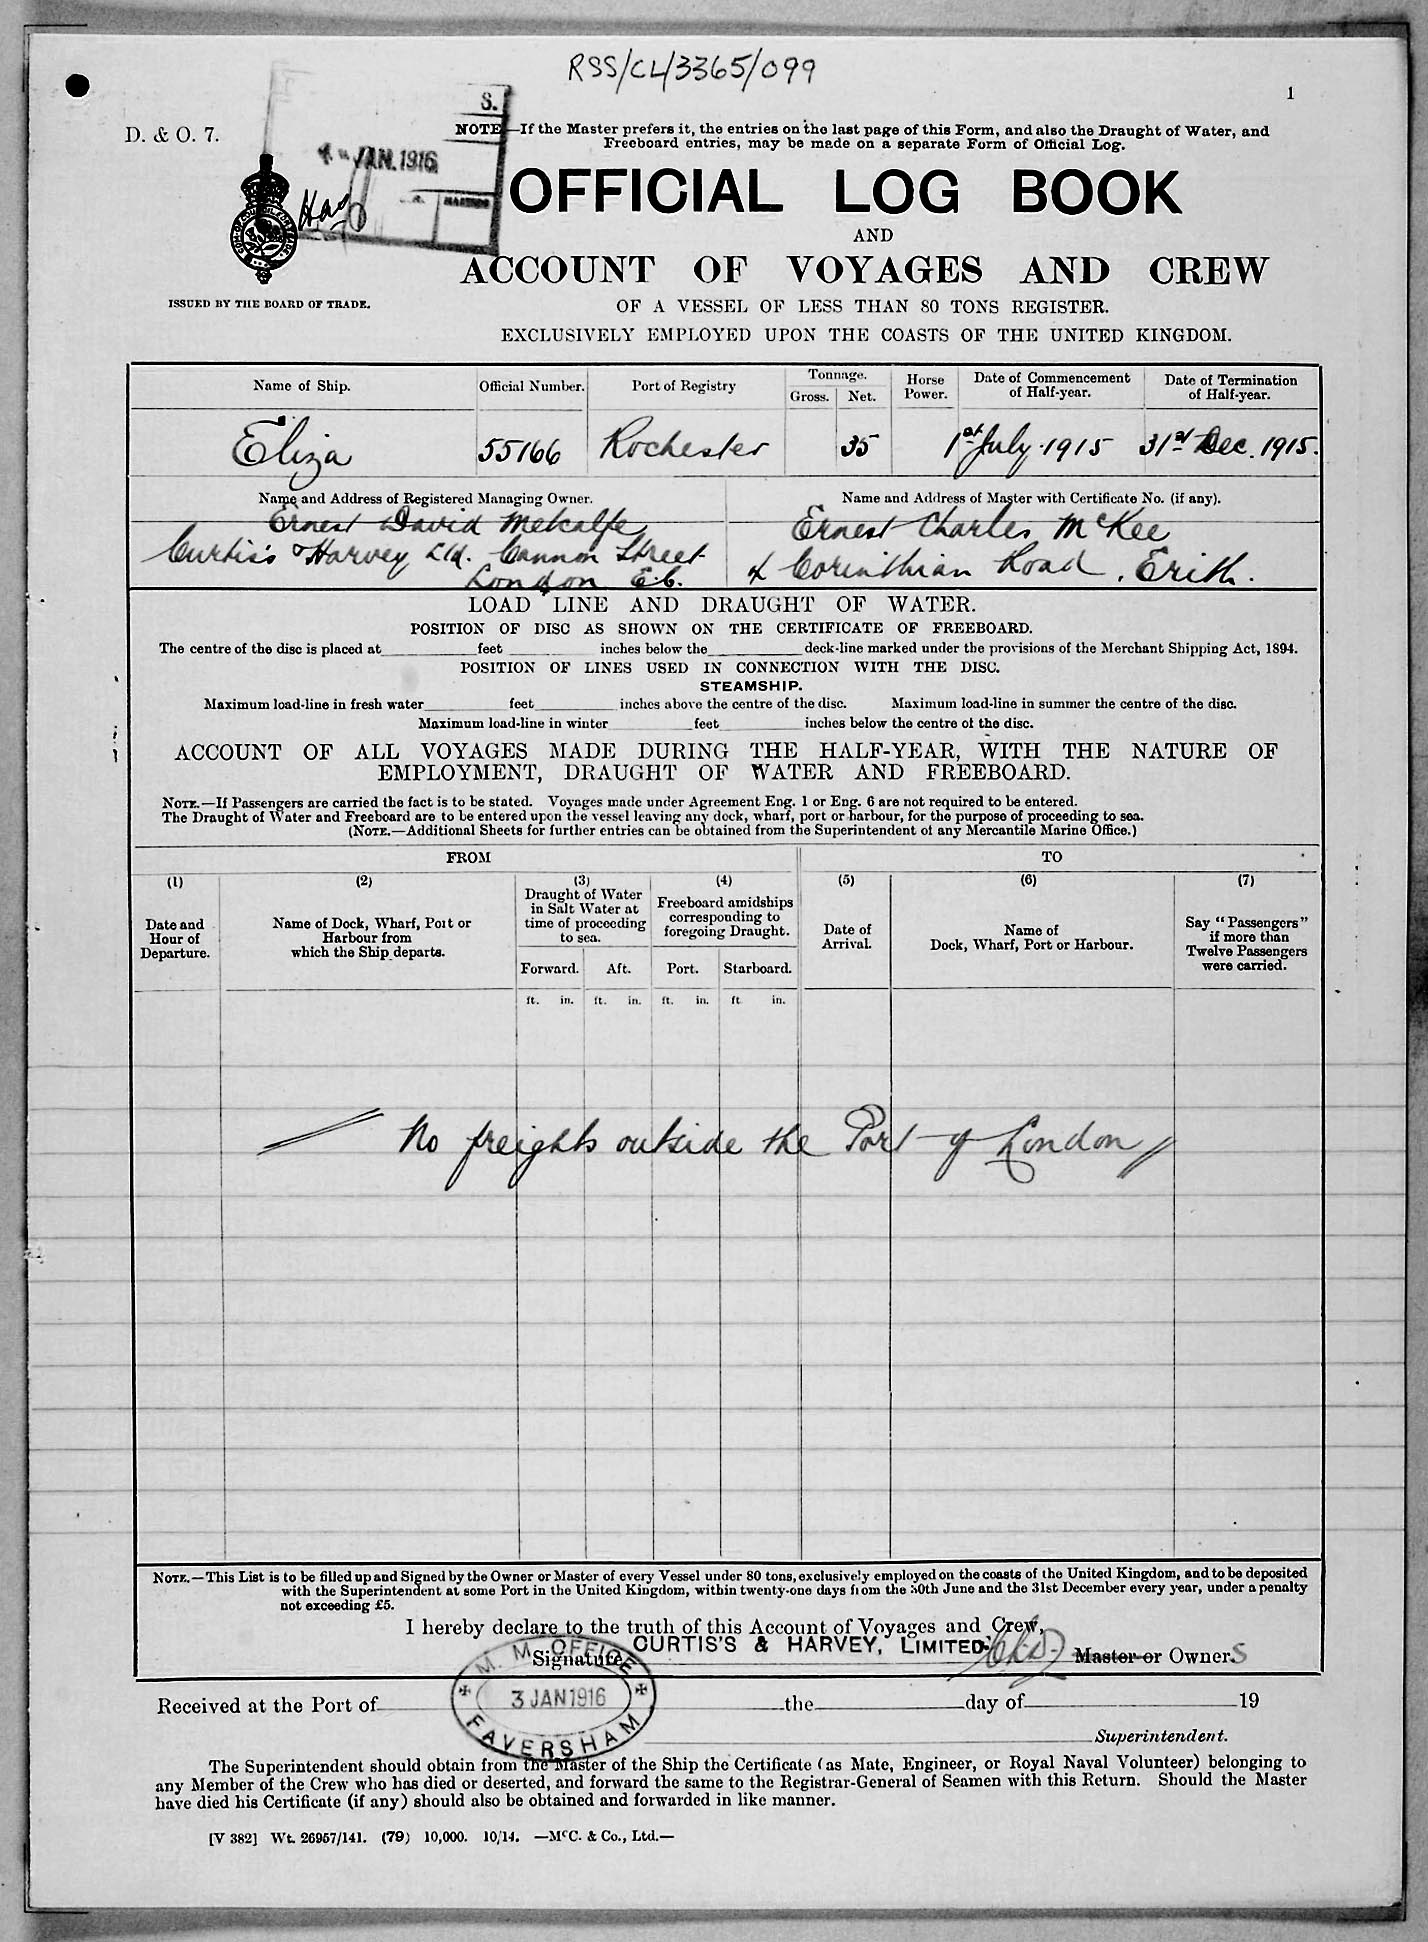 RSS/CL/3365/099
1
D. & O. 7.
S.
JAN. 1916
NOTE.—If the Master prefers it, the entries on the last page of this Form, and also the Draught of Water, and
Freeboard entries, may be made on a separate Form of Official Log.
OFFICIAL LOG BOOK
AND
ACCOUNT OF VOYAGES AND CREW
ISSUED BY THE BOARD OF TRADE.
OF A VESSEL OF LESS THAN 80 TONS REGISTER.
EXCLUSIVELY EMPLOYED UPON THE COASTS OF THE UNITED KINGDOM.
Name of Ship. Official Number. Port of Registry Tonnage. Gross. Net. Horse Power. Date of Commencement of Half-year. Date of Termination of Half-year.
Eliza 55166 Rochester 35 1st July 1915 31st Dec. 1915.
Name and Address of Registered Managing Owner. Name and Address of Master with Certificate No. (if any).
Ernest David Metcalfe Ernest Charles McKee
Curtis's & Harvey Ltd. Cannon Street Corinthian Road, Erith.
London E.C.
LOAD LINE AND DRAUGHT OF WATER.
POSITION OF DISC AS SHOWN ON THE CERTIFICATE OF FREEBOARD.
The centre of the disc is placed at feet inches below the deck-line marked under the provisions of the Merchant Shipping Act, 1894.
POSITION OF LINES USED IN CONNECTION WITH THE DISC.
STEAMSHIP.
Maximum load-line in fresh water feet inches above the centre of the disc. Maximum load-line in summer the centre of the disc.
Maximum load-line in winter feet inches below the centre of the disc.
ACCOUNT OF ALL VOYAGES MADE DURING THE HALF-YEAR, WITH THE NATURE OF
EMPLOYMENT, DRAUGHT OF WATER AND FREEBOARD.
NOTE.—If Passengers are carried the fact is to be stated. Voyages made under Agreement Eng. 1 or Eng. 6 are not required to be entered.
The Draught of Water and Freeboard are to be entered upon the vessel leaving any dock, wharf, port or harbour, for the purpose of proceeding to sea.
(NOTE.—Additional Sheets for further entries can be obtained from the Superintendent of any Mercantile Marine Office.)
FROM TO
(1) (2) (3) (4) (5) (6) (7)
Date and Hour of Departure.
Name of Dock, Wharf, Port or Harbour from which the Ship departs.
Draught of Water in Salt Water at time of proceeding to sea.
Freeboard amidships corresponding to foregoing Draught.
Date of Arrival.
Name of Dock, Wharf, Port or Harbour.
Say "Passengers" if more than Twelve Passengers were carried.
Forward. Aft. Port. Starboard.
ft. in. ft. in. ft. in. ft in.
No freights outside the Port of London
NOTE.—This List is to be filled up and Signed by the Owner or Master of every Vessel under 80 tons, exclusively employed on the coasts of the United Kingdom, and to be deposited
with the Superintendent at some Port in the United Kingdom, within twenty-one days from the 30th June and the 31st December every year, under a penalty
not exceeding £5.
I hereby declare to the truth of this Account of Voyages and Crew,
Signature CURTIS'S & HARVEY, LIMITED. Master or Owners
M. M. OFFICE
3 JAN 1916
FAVERSHAM
Received at the Port of the day of 19
Superintendent.
The Superintendent should obtain from the Master of the Ship the Certificate (as Mate, Engineer, or Royal Naval Volunteer) belonging to
any Member of the Crew who has died or deserted, and forward the same to the Registrar-General of Seamen with this Return. Should the Master
have died his Certificate (if any) should also be obtained and forwarded in like manner.
[V 382] Wt. 26957/141. (79) 10,000. 10/14. —McC. & Co., Ltd.—